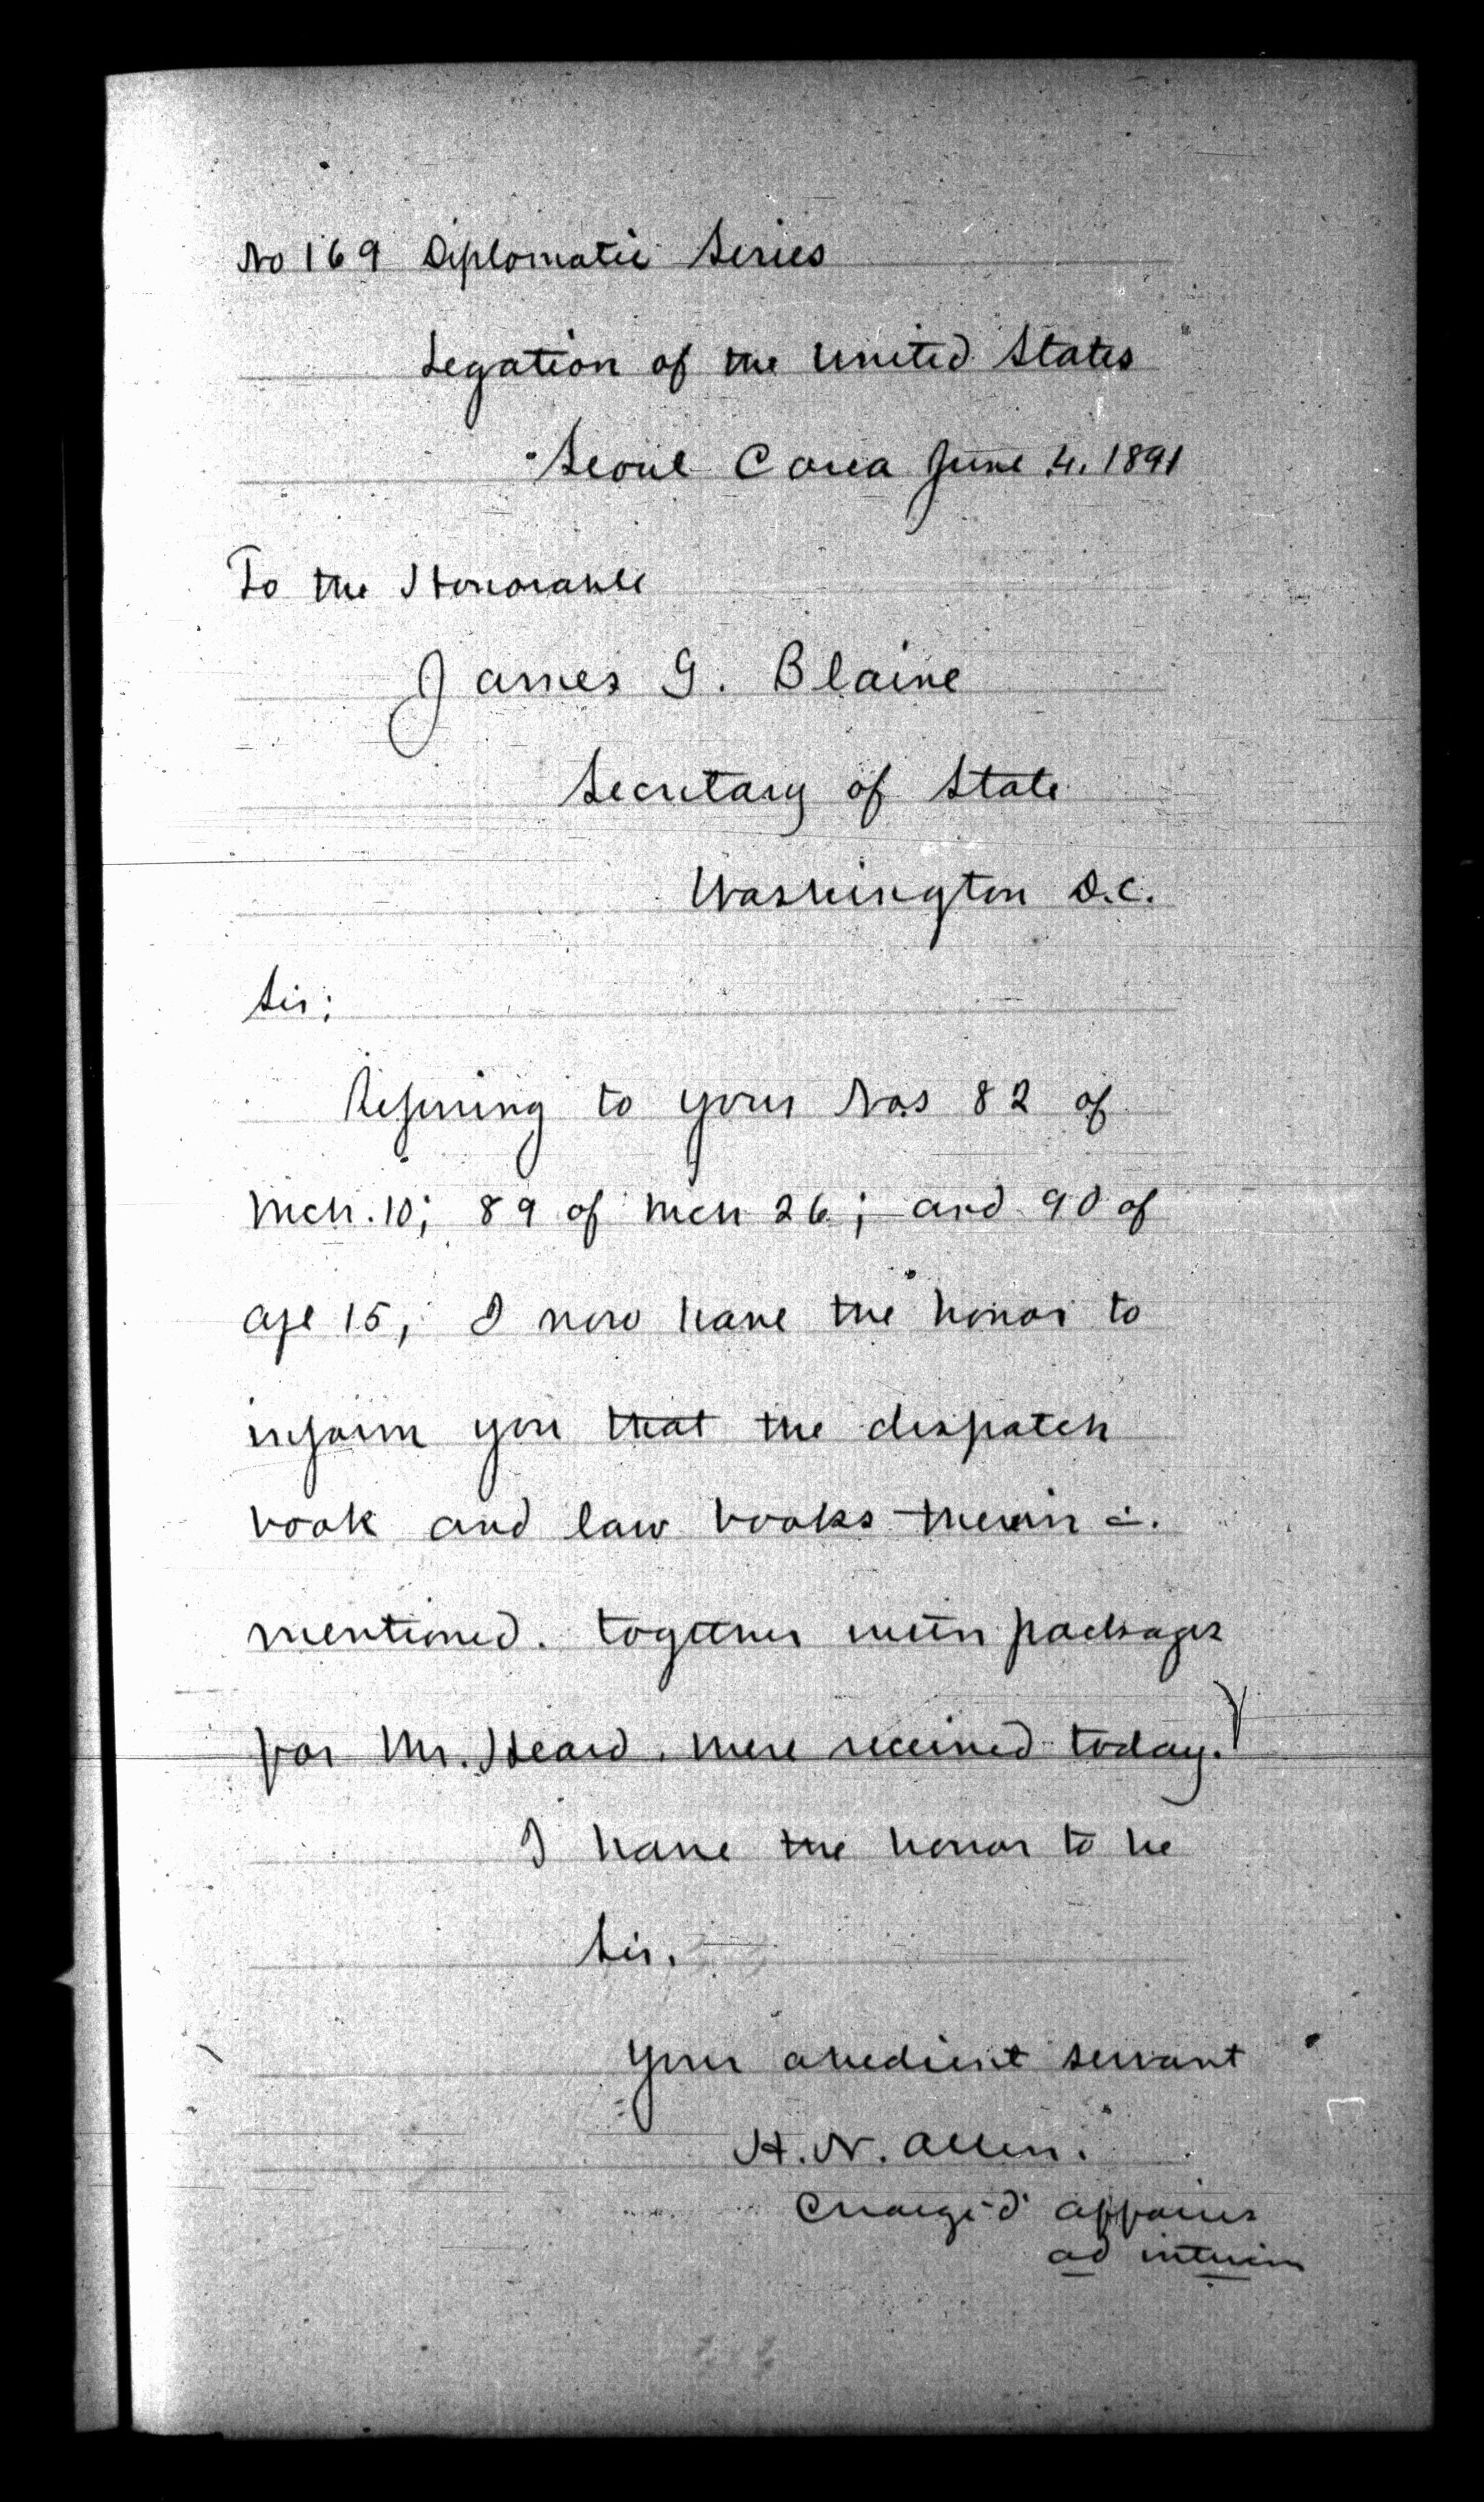 No 169 Diplomatic Series
Legation of the United States
Seoul Corea June 4. 1891
To the Honorable
James G. Blaine
Secretary of State
Washington D.C.
Sir:
Referring to your Nos 82 of
Mch. 10; 89 of Mch 26; and 90 of
Apl 15; I now have the honor to
inform you that the dispatch
book and law books therein
mentioned. together with packages
for Mr. Heard. were received today.
I have the honor to be
Sir.
Your obedient servant
H. N. Allen.
Chargé d' Affaires
ad interim